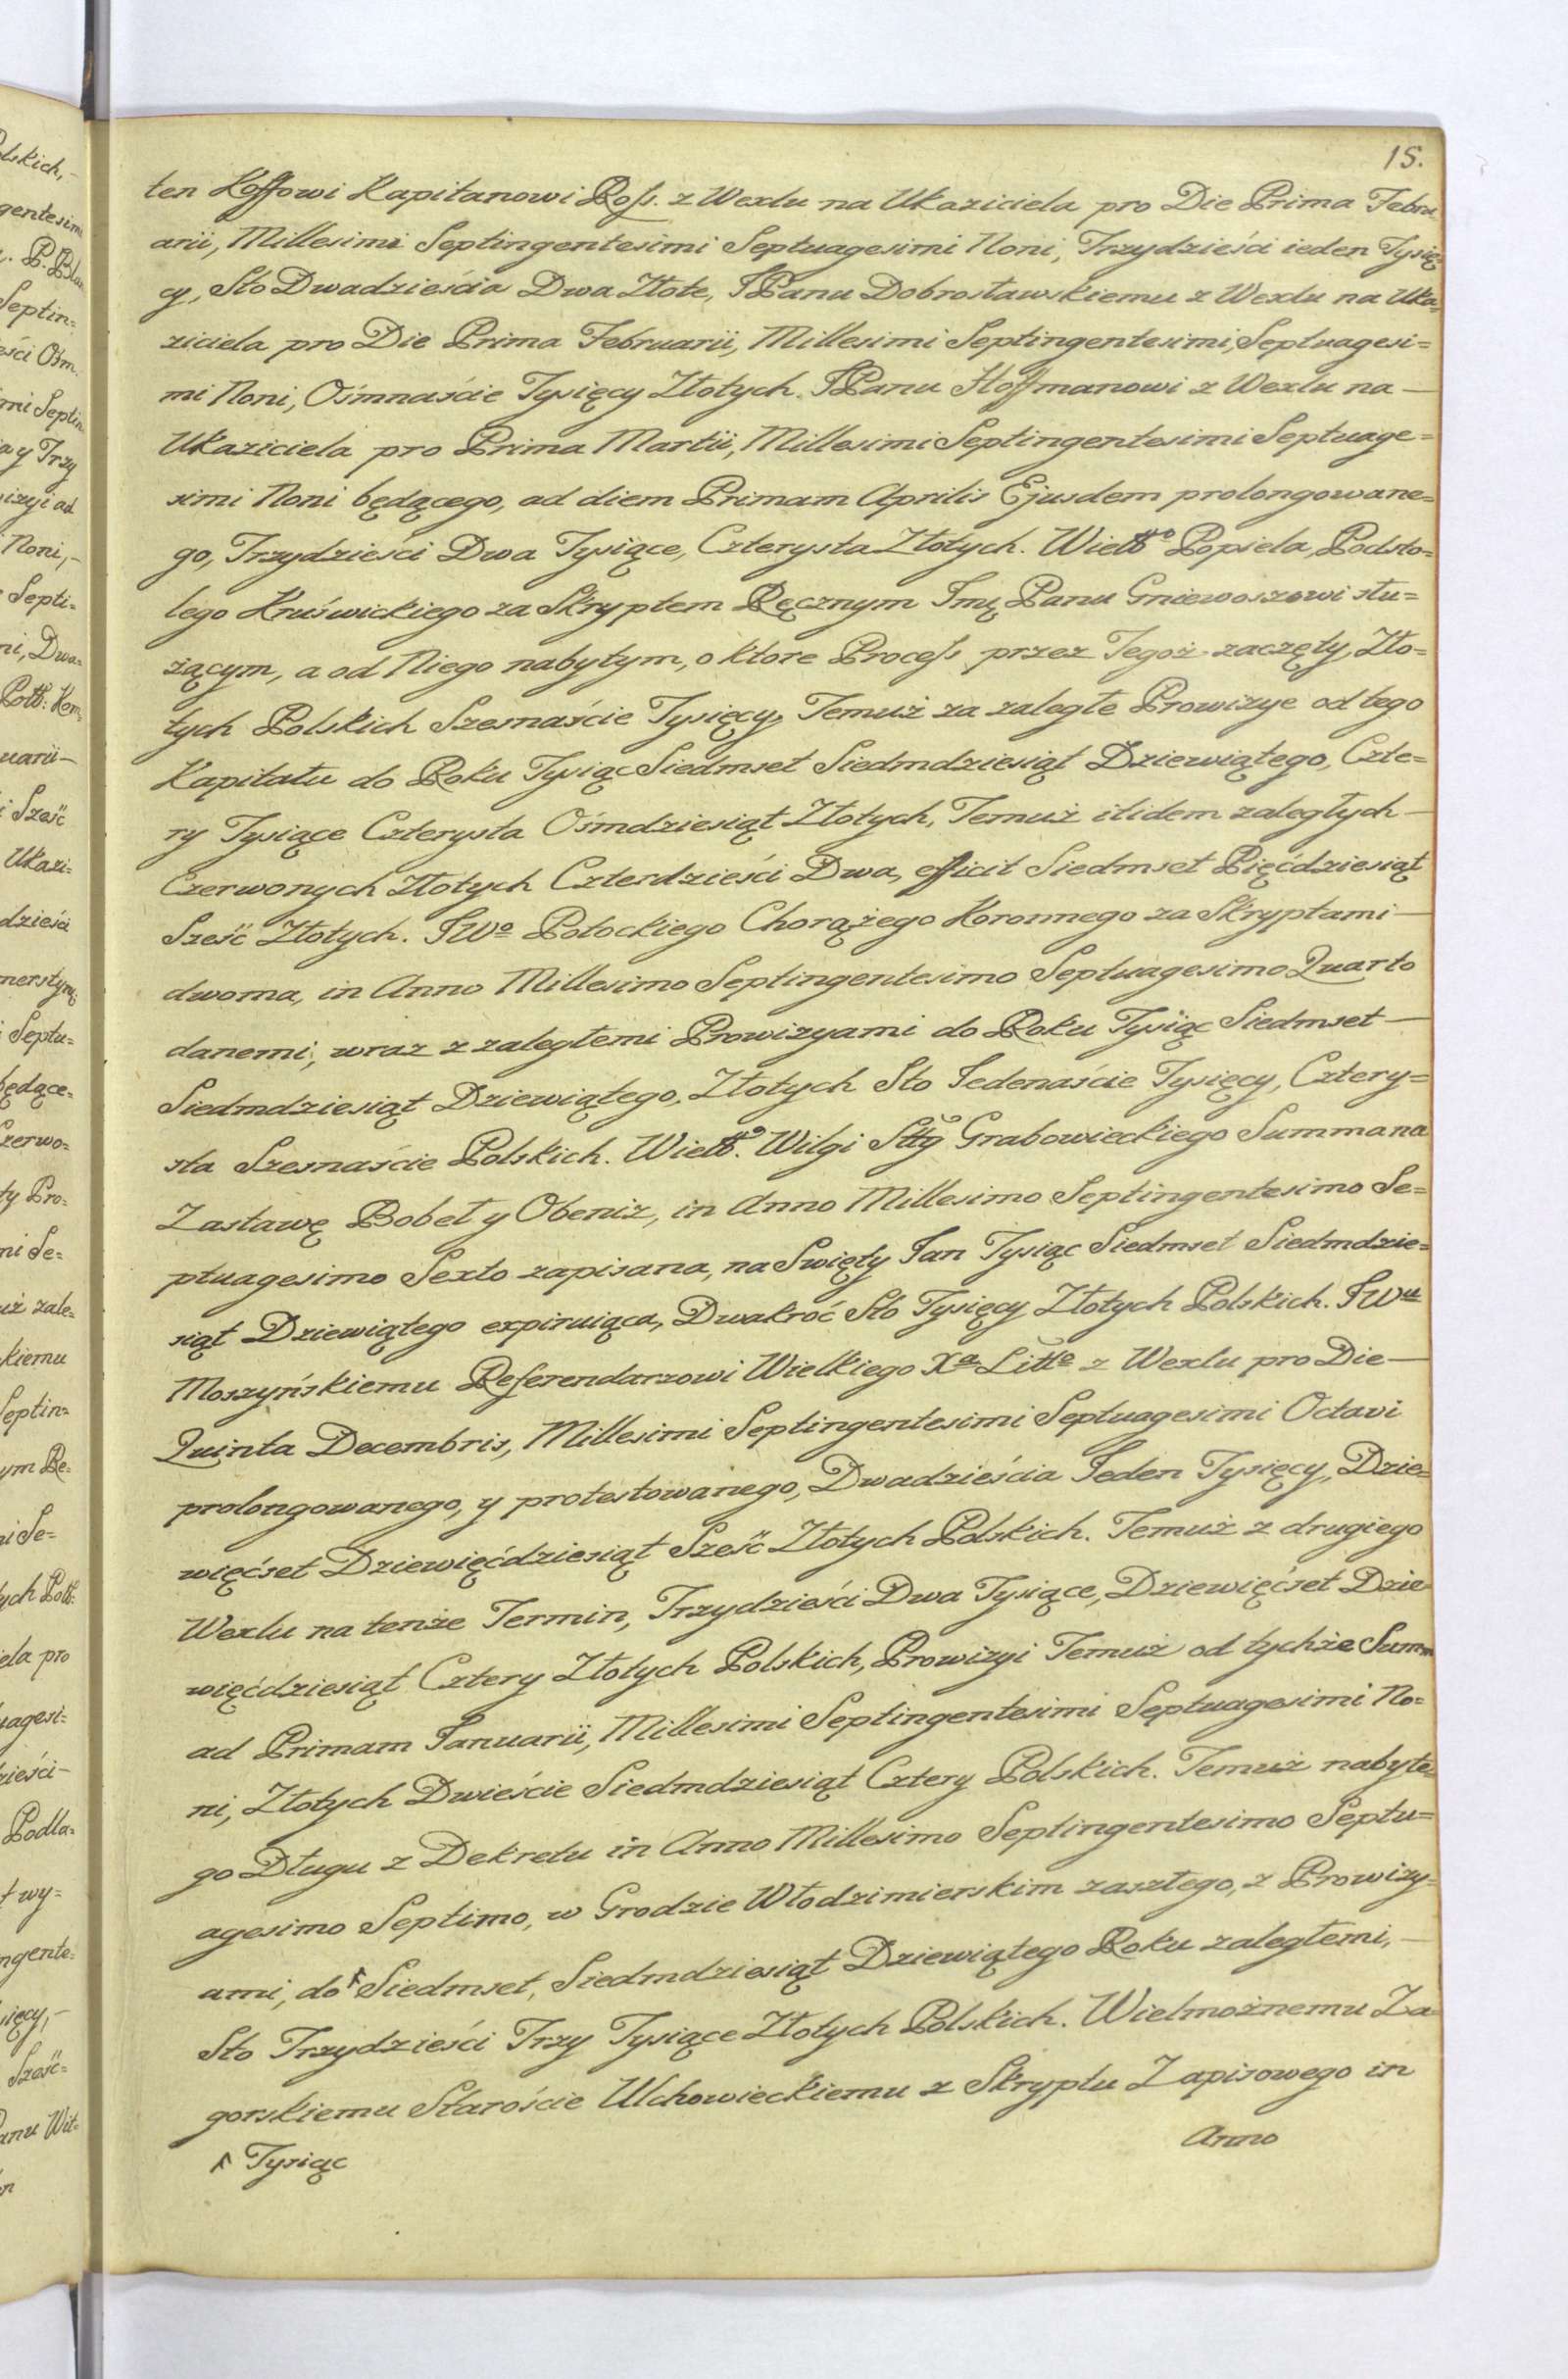 15.
ten Hoffowi Kapitanowi Ross. z Wexlu na Ukaziciela pro Die Prima Febru
arii, Millesimi Septingentesimi Septuagesimi Noni, Trzydzieści ieden Tysię
cy, Sto Dwadzieścia Dwa Złote, JPanu Dobrosławskiemu z Wexlu na Uka=
ziciela pro Die Prima Februarii, Millesimi Septingentesimi, Septuagesi=
mi Noni, Ośmnaście Tysięcy Złotych. JPanu Hoffmanowi z Wexlu na —
Ukaziciela pro Prima Martii, Millesimi Septingentesimi Septuage=
simi Noni będącego, ad diem Primam Aprilis Ejusdem prolongowane=
go, Trzydzieści Dwa Tysiące, Czterysta Złotych. Wielo Popiela, Podsto=
lego Kruświckiego za Skryptem Ręcznym Imę Panu Gniewoszowi słu=
żącym, a od Niego nabytym, o ktore Process przez Tegoż zaczęty, Zło=
tych Polskich Szesnaście Tysięcy, Temuż za zaległe Prowizye od tego
Kapitału do Roku Tysiąc Siedmset Siedmdziesiąt Dziewiątego, Czte=
ry Tysiące Czterysta Ośmdziesiąt Złotych, Temuż itidem zaległych —
Czerwonych Złotych Czterdzieści Dwa, efficit Siedmset Pięćdziesiąt
Sześć Złotych. JWo Potockiego Chorążego Koronnego za Skryptami —
dwoma, in Anno Millesimo Septingentesimo Septuagesimo Quarto
danemi, wraz z zaległemi Prowizyami do Roku Tysiąc Siedmset —
Siedmdziesiąt Dziewiątego, Złotych Sto Jedenaście Tysięcy, Cztery=
sta Szesnaście Polskich. Wilgi Stty Grabowieckiego Summa na
Zastawę Bobeł y Obeniż, in Anno Millesimo Septingentesimo Se=
ptuagesimo Sexto zapisana, na Swięty Jan Tysiąc Siedmset Siedmdzie=
siąt Dziewiątego expiruiąca, Dwakroć Sto Tysięcy Złotych Polskich. JWu
Moszyńskiemu Referendarzowi Wielkiego Xa Litto z Wexlu pro Die —
Quinta Decembris, Millesimi Septingentesimi Septuagesimi Octavi
prolongowanego, y protestowanego, Dwadzieścia Jeden Tysięcy, Dzie=
więćset Dziewięćdziesiąt Sześć Złotych Polskich. Temuż z drugiego
Wexlu na tenże Termin, Trzydzieści Dwa Tysiące, Dziewięćset Dzie
więćdziesiąt Cztery Złotych Polskich, Prowizyi Temuż od tychże Summ
ad Primam Januarii, Millesimi Septingentesimi Septuagesimi No=
ni, Złotych Dwieście Siedmdziesiąt Cztery Polskich. Temuż nabyte=
go Długu z Dekretu in Anno Millesimo Septingentesimo Septu=
agesimo Septimo, w Grodzie Włodzimierskim zaszłego, z Prowizy=
ami, do Siedmset, Siedmdziesiąt Dziewiątego Roku zaległemi, —
Sto Trzydzieści Trzy Tysiące Złotych Polskich. Wielmożnemu Za
gorskiemu Staroście Uchowieckiemu z Skryptu Zapisowego in
Anno
Tysiąc